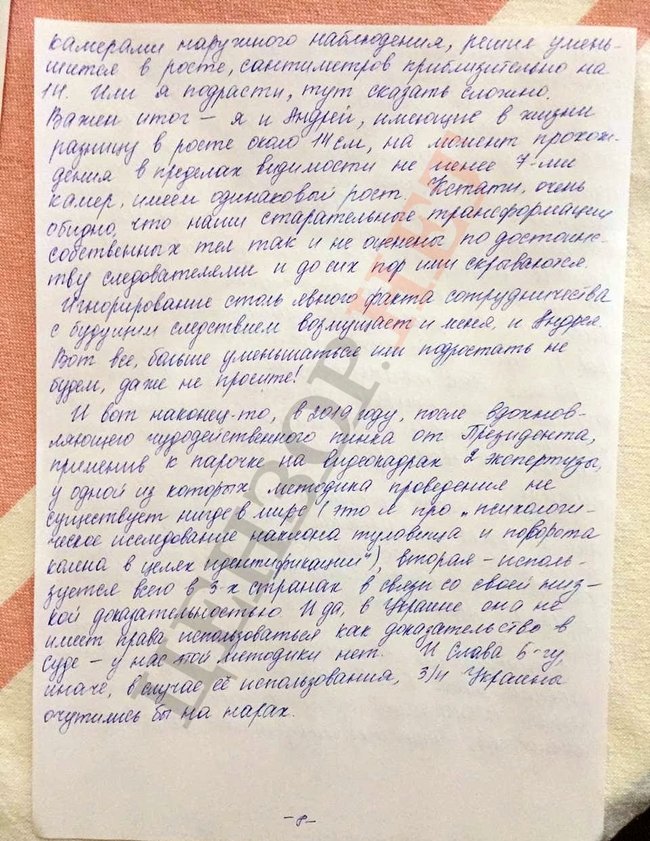 камерами наружного наблюдения, решил умень-
шиться в росте, сантиметров приблизительно на
14. Или я подрасти, тут сказать сложно.
Важен итог – я и Андрей, имеющие в жизни
разницу в росте около 14 см, на момент прохож-
дения в пределах видимости не менее 7-ми
камер, имеем одинаковый рост. Кстати, очень
обидно, что наши старательные трансформации
собственных тел так и не оценены по достоинс-
тву следователями и до сих пор ими скрываются.
Игнорирование столь явного факта сотрудничества
с будущим следствием возмущает и меня, и Андрея.
Вот все, больше уменьшаться или подростать не
будем, даже не просите!
И вот наконец-то, в 2019 году, после вдохнов-
ляющего чудодейственного пинка от Президента,
применив к парочке на видеокадрах 2 экспертизы,
у одной из которых методика проведения не
существует нигде в мире (это я про „психологи-
ческое исследование наклона туловища и поворота
колена в целях идентификации"), вторая – исполь-
зуется всего в 3-х странах в связи со своей низ-
кой доказательностью. И да, в Украине она не
имеет права использоваться как доказательство в
суде – у нас той методики нет. И Слава Б-гу,
иначе, в случае её использования, 3/4 Украины
очутились бы на нарах.
-8-
ЦЕНЗОР.НЕТ